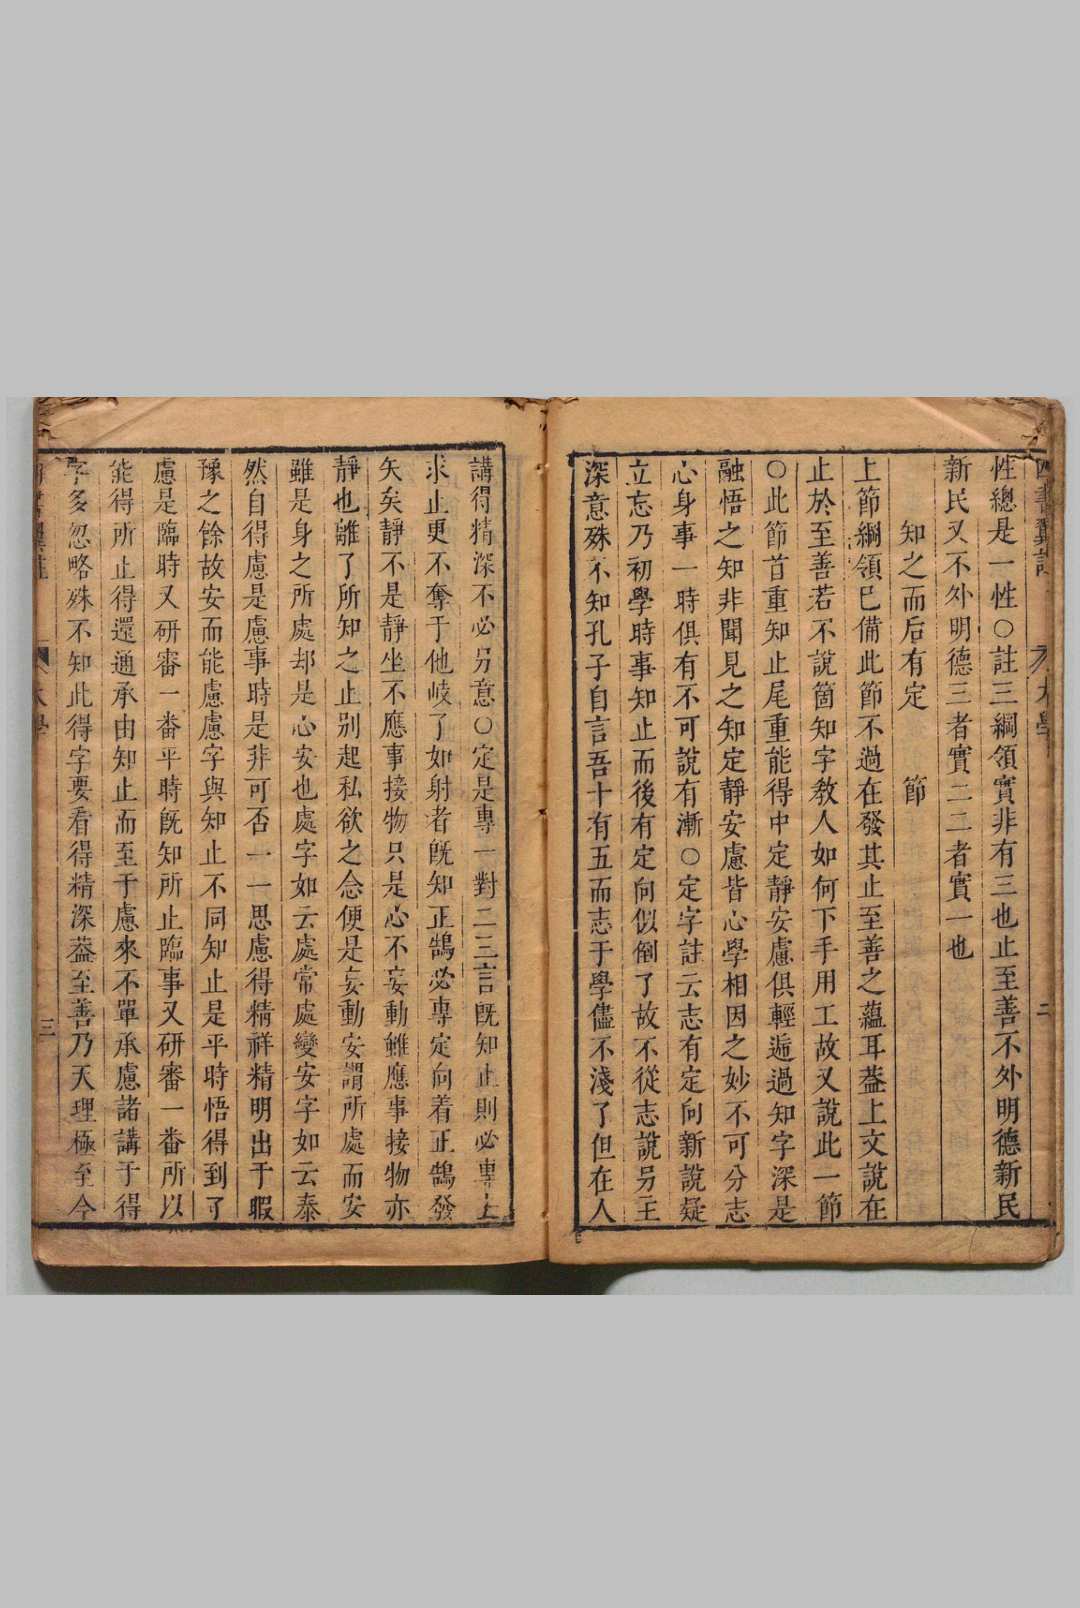 大學
二
性總是一性○註三綱領實非有三也止至善不外明德新民
新民又不外明德三者實二二者實一也
知之而后有定 節
上節綱領已備此節不過在發其止至善之蘊耳葢上文說在
止於至善若不說箇知字教人如何下手用工故又說此一節
○此節首重知止尾重能得中定靜安慮俱輕遞過知字深是
融悟之知非聞見之知定靜安慮皆心學相因之妙不可分志
心身事一時俱有不可說有漸○定字註云志有定向新說疑
立忘乃初學時事知止而後有定向似倒了故不從志說另主
深意殊不知孔子自言吾十有五而志于學儘不淺了但在人
講得精深不必另意○定是專一對二三言既知止則必專上
求止更不奪于他岐了如射者既知正鵠必專定向着正鵠發
矢矣靜不是靜坐不應事接物只是心不妄動雖應事接物亦
靜也離了所知之止別起私欲之念便是妄動安謂所處而安
雖是身之所處却是心安也處字如云處常處變安字如云泰
然自得慮是慮事時是非可否一一思慮得精祥精明出于暇
豫之餘故安而能慮慮字與知止不同知止是平時悟得到了
慮是臨時又研審一番平時既知所止臨事又研審一番所以
能得所止得還通承由知止而至于慮來不單承慮諸講于得
字多忽略殊不知此得字要看得精深葢至善乃天理極至今
大學
三